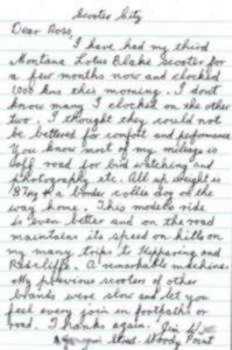 Scooter City
Dear Ross,
I have had my third
Montana Lotus Blake scooter for
a few months now and clocked
1000 kms this morning. I dont
know many I clocked on the other
two. I thought they could not
be bettered for comfort and performance
You know most of my mileage is
off road for bird watching and
photography etc. All up weight is
187kg + a border collie dog on the
way home. This models ride
is even better and on the road
maintains its speed on hills on
my many trips to Kippa ring and
Redcliffe. A remarkable machine.
My previous scooters of other
brands were slow and let you
feel every join in footpaths or
road. Thanks again. Jim
Woody Point